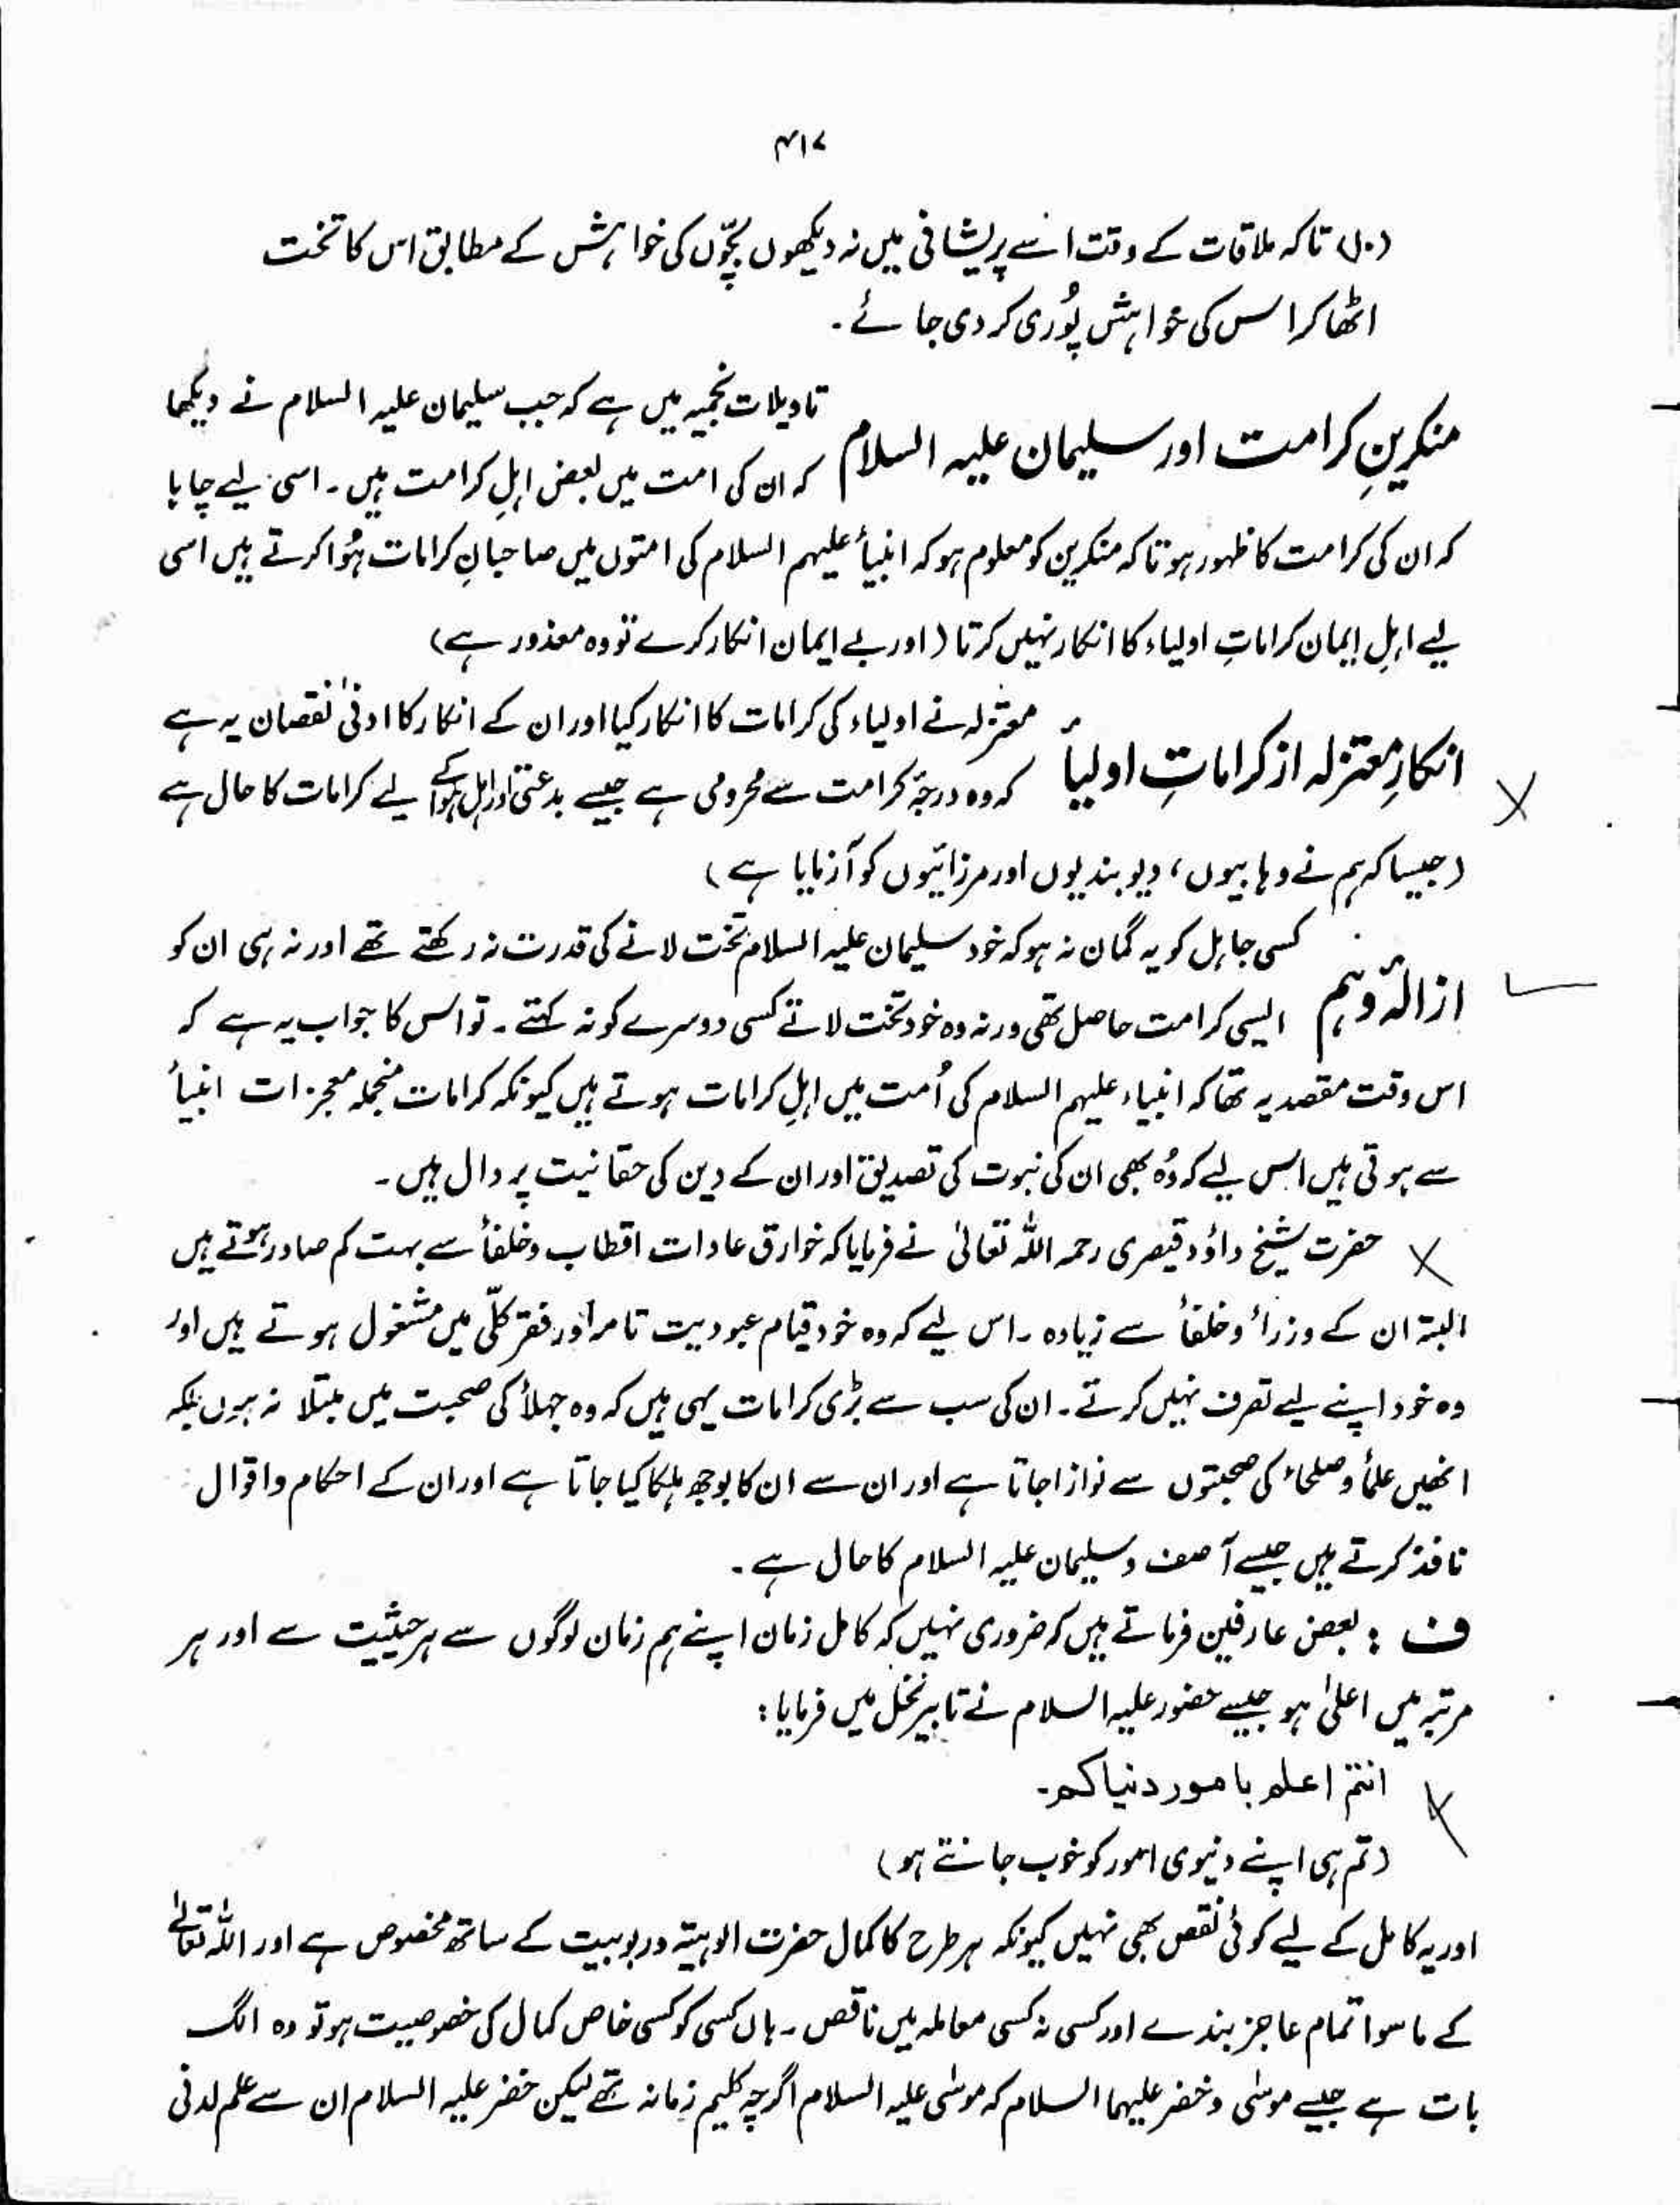 ۴۱۷
(۱۰) تاکہ ملاقات کے وقت اسے پریشانی میں نہ دیکھوں بچّوں کی خواہش کے مطابق اس کا تخت
اٹھا کر اس کی خواہش پُوری کر دی جائے۔
منکرینِ کرامت اور سلیمان علیہ السلام
تاویلات نجمیہ میں ہے کہ جب سلیمان علیہ السلام نے دیکھا
کہ ان کی امت میں بعض اہلِ کرامت ہیں۔ اسی لیے چاہا
کہ ان کی کرامت کا ظہور ہو تاکہ منکرین کو معلوم ہو کہ انبیأ علیہم السلام کی امتوں میں صاحبانِ کرامات ہُوا کرتے ہیں اسی
لیے اہلِ ایمان کراماتِ اولیاء کا انکار نہیں کرتا (اور بے ایمان انکار کرے تو وہ معذور ہے)
انکارِ معتزلہ از کراماتِ اولیأ
معتزلہ نے اولیاء کی کرامات کا انکار کیا اور ان کے انکار کا ادنیٰ نقصان یہ ہے
کہ وہ درجۂ کرامت سے محرومی ہے جیسے بدعتی اور اہل ہوا کے لیے کرامات کا حال ہے
(جیسا کہ ہم نے وہابیوں، دیوبندیوں اور مرزائیوں کو آزمایا ہے)
ازالۂ وہم
کسی جاہل کو یہ گمان نہ ہو کہ خود سلیمان علیہ السلام تخت لانے کی قدرت نہ رکھتے تھے اور نہ ہی ان کو
ایسی کرامت حاصل تھی ورنہ وہ خود تخت لاتے کسی دوسرے کو نہ کہتے۔ تو اس کا جواب یہ ہے کہ
اس وقت مقصد یہ تھا کہ انبیاء علیہم السلام کی اُمت میں اہلِ کرامات ہوتے ہیں کیونکہ کرامات منجملہ معجزات انبیأ
سے ہوتی ہیں اس لیے کہ وُہ بھی ان کی نبوت کی تصدیق اور ان کے دین کی حقانیت پر دال ہیں۔
حضرت شیخ داؤد قیصری رحمہ اللہ تعالیٰ نے فرمایا کہ خوارق عادات اقطاب و خلفأ سے بہت کم صادر ہوتے ہیں
البتہ ان کے وزرأ و خلفأ سے زیادہ۔ اس لیے کہ وہ خود قیام عبودیت تامہ اور فقر کلّی میں مشغول ہوتے ہیں اور
وہ خود اپنے لیے تصرف نہیں کرتے۔ ان کی سب سے بڑی کرامات یہی ہیں کہ وہ جہلأ کی صحبت میں مبتلا نہ ہوں بلکہ
انھیں علمأ و صلحاء کی صحبتوں سے نوازا جاتا ہے اور ان سے ان کا بوجھ ہلکا کیا جاتا ہے اور ان کے احکام و اقوال
نافذ کرتے ہیں جیسے آصف و سلیمان علیہ السلام کا حال ہے۔
ف : بعض عارفین فرماتے ہیں کہ ضروری نہیں کہ کامل زمان اپنے ہم زمان لوگوں سے ہر حیثیت سے اور ہر
مرتبہ میں اعلیٰ ہو جیسے حضور علیہ السلام نے تابیر نخل میں فرمایا :
انتم اعلم بامور دنیاکم۔
(تم ہی اپنے دنیوی امور کو خوب جانتے ہو)
اور یہ کامل کے لیے کوئی نقص بھی نہیں کیونکہ ہر طرح کا کمال حضرت الوہیۃ و ربوبیت کے ساتھ مخصوص ہے اور اللہ تعالیٰ
کے ماسوا تمام عاجز بندے اور کسی نہ کسی معاملہ میں ناقص۔ ہاں کسی کو کسی خاص کمال کی خصوصیت ہو تو وہ الگ
بات ہے جیسے موسٰی و خضر علیہما السلام کہ موسٰی علیہ السلام اگرچہ کلیم زمانہ تھے لیکن خضر علیہ السلام ان سے علم لدنی